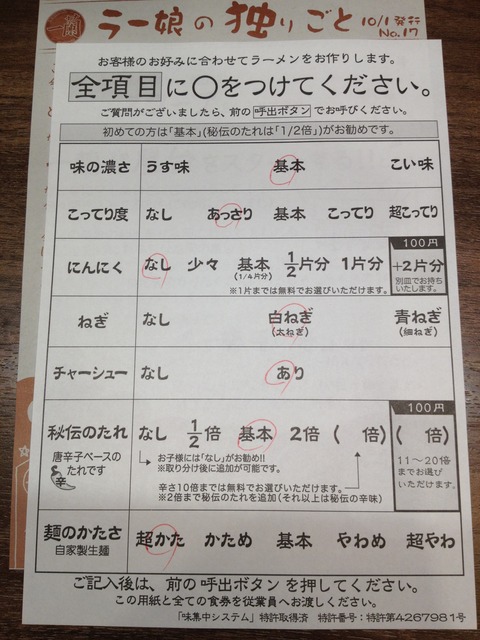 ラー娘の独りごと
10/1発行
No.17
お客様のお好みに合わせてラーメンをお作りします。
全項目に〇をつけてください。
ご質問がございましたら、前の呼出ボタンでお呼びください。
初めての方は「基本」(秘伝のたれは「1/2倍」)がお勧めです。
味の濃さ うす味 基本 こい味
こってり度 なし あっさり 基本 こってり 超こってり
にんにく なし 少々 基本 1/2片分 1片分
(1/4片分)
※1片までは無料でお選びいただけます。
100円
+2片分
別皿でお持ち
いたします。
ねぎ なし 白ねぎ 青ねぎ
(太ねぎ) (細ねぎ)
チャーシュー なし あり
秘伝のたれ なし 1/2倍 基本 2倍 ( 倍)
唐辛子ベースの
たれです
辛
お子様には「なし」がお勧め!!
※取り分け後に追加が可能です。
辛さ10倍までは無料でお選びいただけます。
※2倍まで秘伝のたれを追加(それ以上は秘伝の辛味)
100円
( 倍)
11〜20倍
までお選び
いただけます。
麺のかたさ 超かた かため 基本 やわめ 超やわ
自家製生麺
ご記入後は、前の呼出ボタンを押してください。
この用紙と全ての食券を従業員へお渡しください。
「味集中システム」特許取得済 特許番号:特許第4267981号